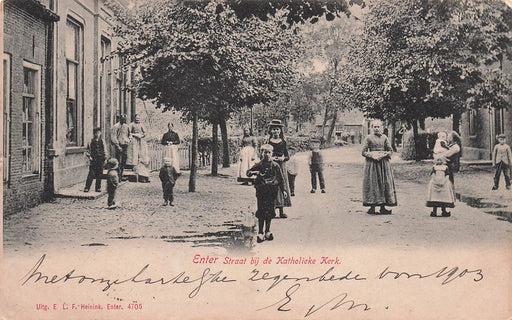 Enter Straat bij de Katholieke Kerk.
Met onze hartelijke zegenbede voor 1903
E M.
Uitg. E. L. F. Heinink, Enter. 4705